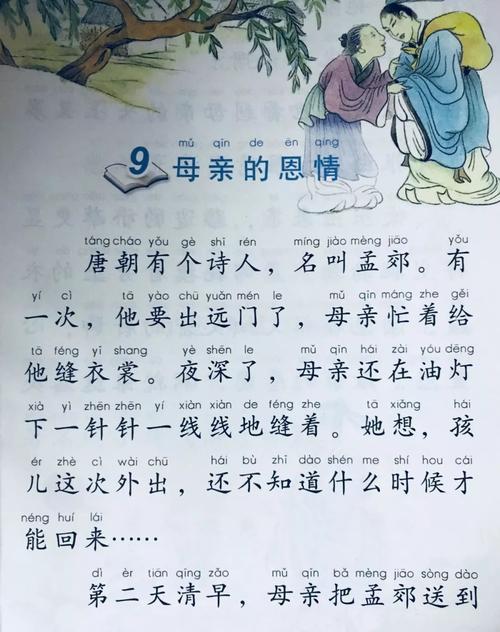 mǔ qīn de ēn qíng
9 母亲的恩情
táng cháo yǒu gè shī rén míng jiào mèng jiāo yǒu
唐朝有个诗人，名叫孟郊。有
yí cì tā yào chū yuǎn mén le mǔ qīn máng zhe gěi
一次，他要出远门了，母亲忙着给
tā féng yī shang yè shēn le mǔ qīn hái zài yóu dēng
他缝衣裳。夜深了，母亲还在油灯
xià yì zhēn zhēn yí xiàn xiàn de féng zhe tā xiǎng hái
下一针针一线线地缝着。她想，孩
ér zhè cì wài chū hái bù zhī dào shén me shí hou cái
儿这次外出，还不知道什么时候才
néng huí lái
能回来……
dì èr tiān qīng zǎo mǔ qīn bǎ mèng jiāo sòng dào
第二天清早，母亲把孟郊送到